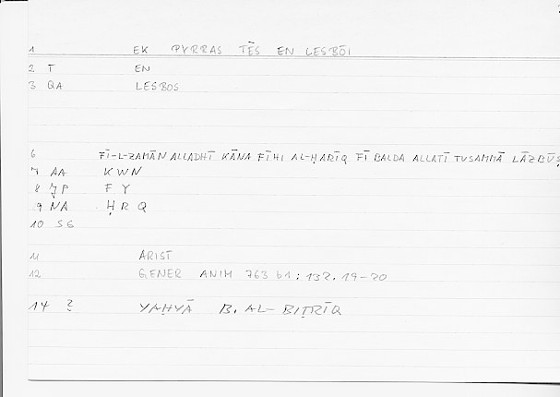 1 EK PYRRAS TĒS EN LESBŌI
2 T EN
3 QA LESBOS
6 FĪ-L-ZAMĀN ALLADHĪ KĀNA FĪHI AL-ḤARĪQ FĪ BALDA ALLATĪ TUSAMMĀ LĀZBŪṢ
7 AA KWN
8 ḤP F Y
9 NA Ḥ R Q
10 SG
11 ARIST
12 GENER ANIM 763 b1 ; 132. 19-20
14 ? YAḤYĀ B. AL-BIṬRĪQ